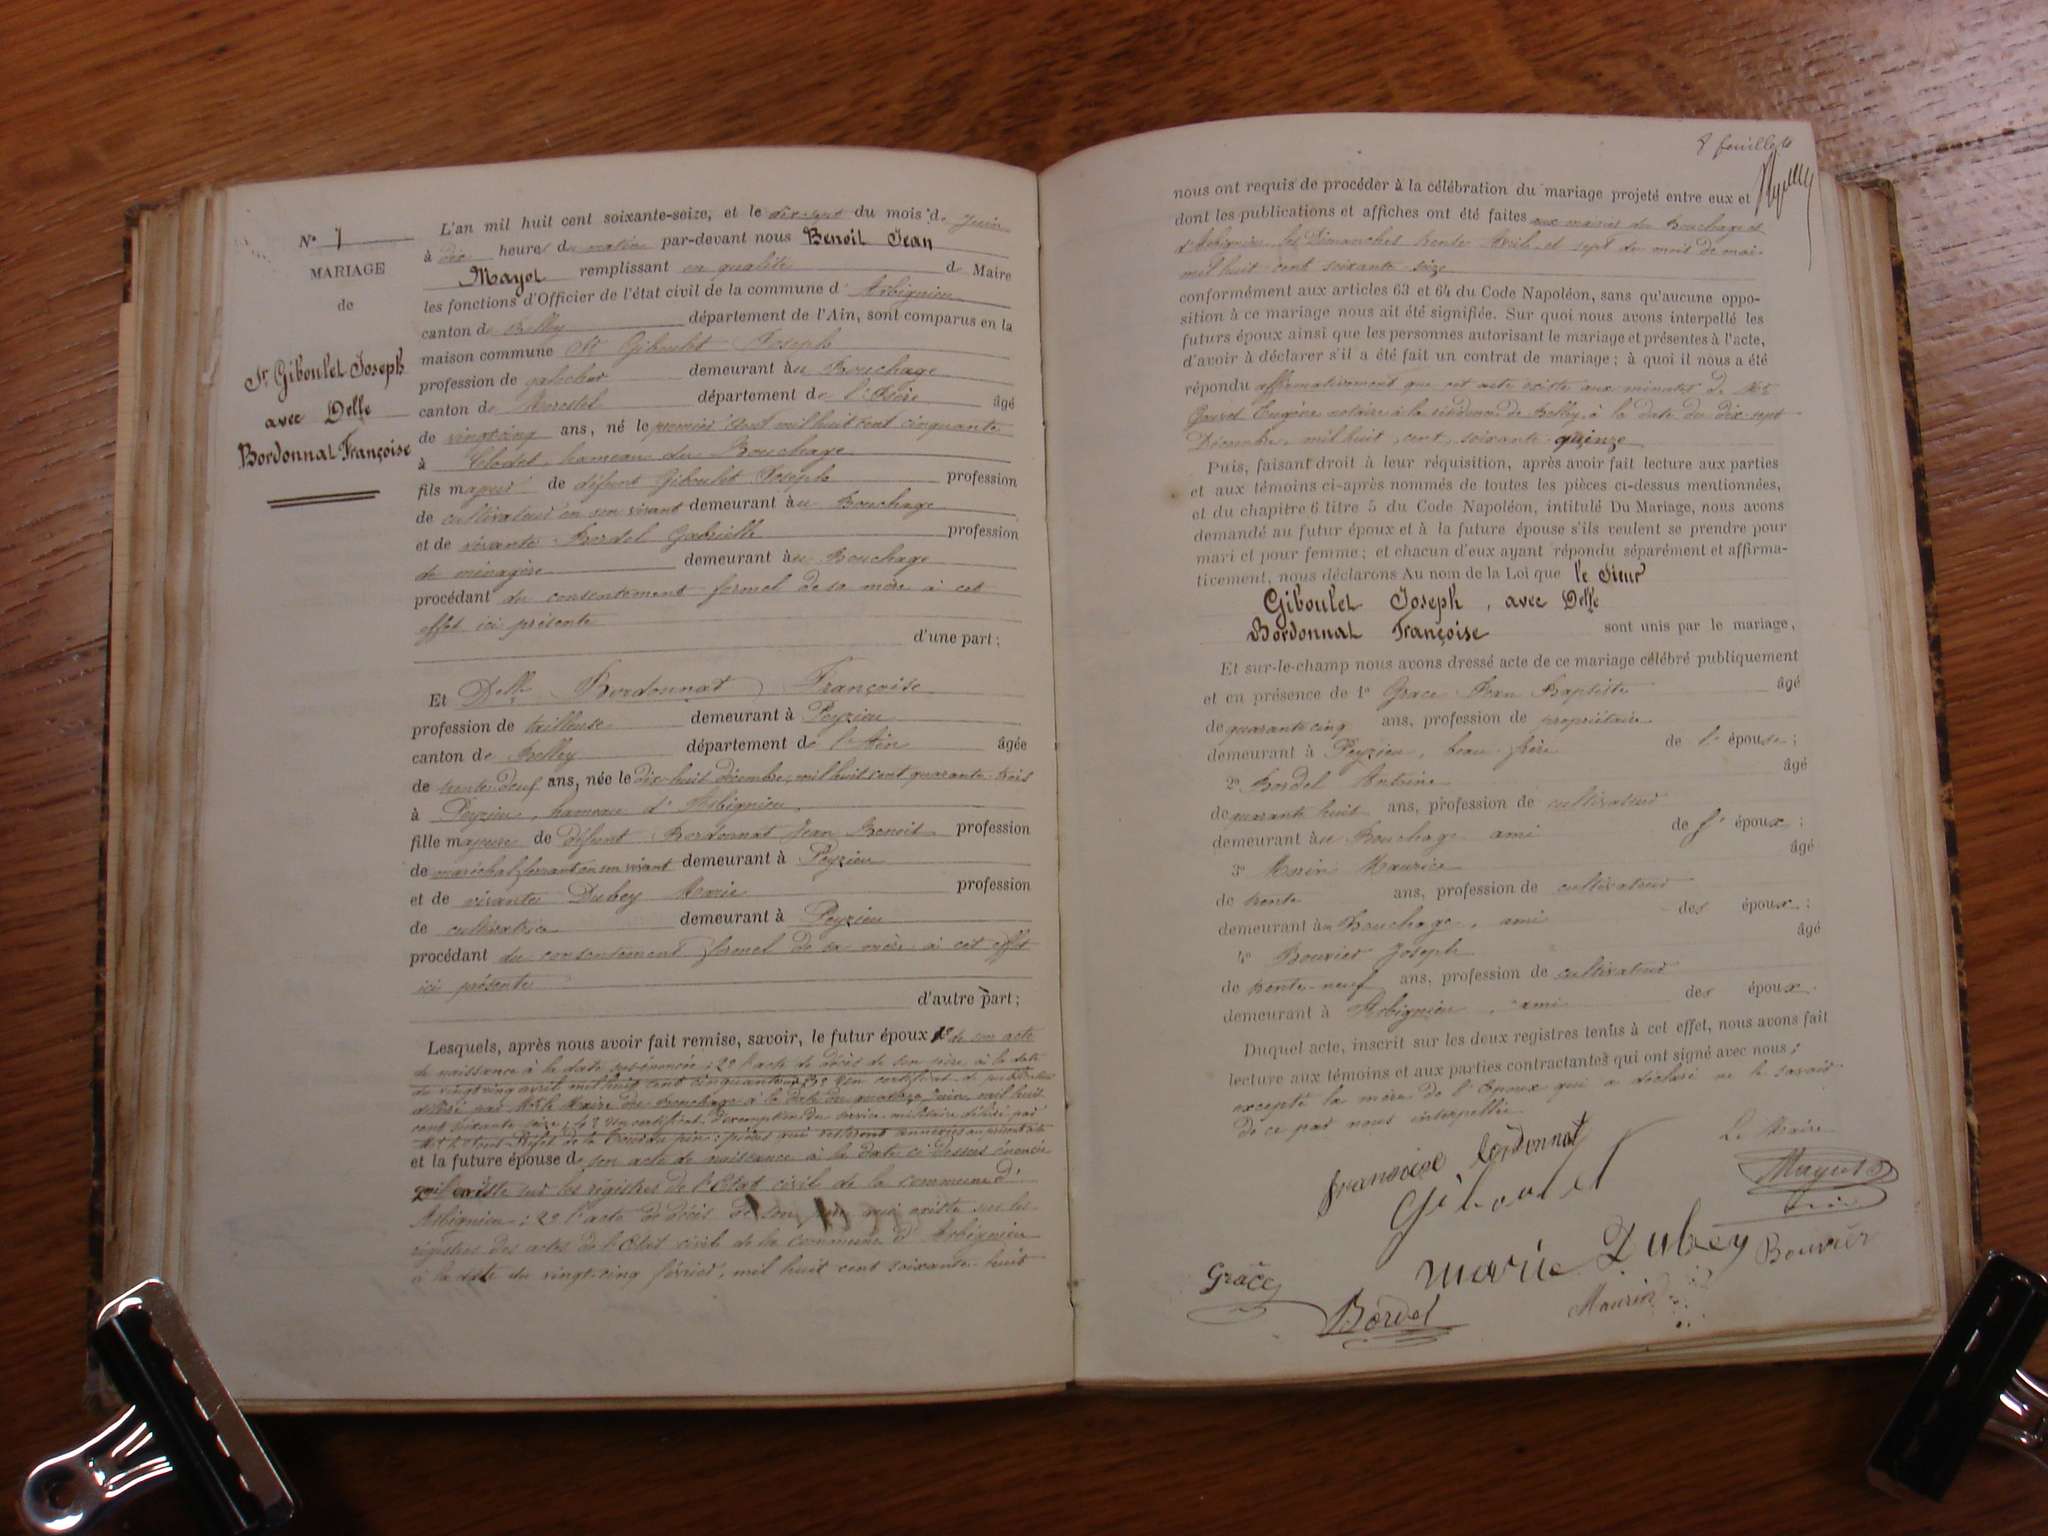 N° 7
MARIAGE
de
Sr Giboulet Joseph
avec Delle
Bordonnat Françoise
L'an mil huit cent soixante-seize, et le dix-sept du mois de Juin
à dix heures du matin par-devant nous Benoit Jean
Mayot remplissant en qualité de Maire
les fonctions d'Officier de l'état civil de la commune d'Arbignieu
canton de Belley département de l'Ain, sont comparus en la
maison commune Sr Giboulet Joseph
profession de demeurant au Bouchage
canton de Morestel département de l'Isère âgé
de vingt cinq ans, né le premier Aout mil huit cent cinquante
à hameau du Bouchage
fils majeur de défunt Giboulet Joseph profession
de cultivateur en son vivant demeurant au Bouchage
et de vivante Bordel Gabrielle profession
de ménagère demeurant au Bouchage
procédant du consentement formel de sa mère à cet
effet ici présente
d'une part;
Et Delle Bordonnat Françoise
profession de tailleuse demeurant à Peyzieu
canton de Belley département de l'Ain âgée
de trente deux ans, née le dix-huit décembre, mil huit cent quarante-trois
à Peyzieu, hameau d'Arbignieu
fille majeure de défunt Bordonnat Jean Benoit profession
de maréchal ferrant en son vivant demeurant à Peyzieu
et de vivante Dubey Marie profession
de cultivatrice demeurant à Peyzieu
procédant du consentement formel de sa mère à cet effet
ici présente
d'autre part;
Lesquels, après nous avoir fait remise, savoir, le futur époux 1° de son acte
de naissance à la date sus-énoncée; 2° l'acte de décès de son père à la date
du vingt cinq avril mil huit cent cinquante 3° d'un certificat de publication
délivré par Mr le Maire du Bouchage à la date du quatorze Juin, mil huit
cent soixante seize; 4° d'un certificat d'exemption du service militaire délivré par
Mr le Sous-Préfet de la Tour du pin; pièces qui resteront annexées au présent acte
et la future épouse de son acte de naissance à la date ci-dessus énoncée
existe sur les régistres de l'Etat civil de la commune d'
Arbignieu; 2° l'acte de décès de son père qui existe sur les
régistres des actes de l'Etat civil de la commune d'Arbignieu
à la date du vingt-cinq février, mil huit cent soixante-huit
8e feuillet
nous ont requis de procéder à la célébration du mariage projeté entre eux et
dont les publications et affiches ont été faites aux mairies du Bouchage et
d'Arbignieu, les Dimanches trente Avril et sept du mois de mai
mil huit cent soixante seize
conformément aux articles 63 et 64 du Code Napoléon, sans qu'aucune oppo-
sition à ce mariage nous ait été signifiée. Sur quoi nous avons interpellé les
futurs époux ainsi que les personnes autorisant le mariage et présentes à l'acte,
d'avoir à déclarer s'il a été fait un contrat de mariage; à quoi il nous a été
répondu affirmativement que cet acte existe aux minutes de Me
Eugène notaire à la résidence de Belley, à la date du dix-sept
Décembre, mil huit cent soixante quinze
Puis, faisant droit à leur réquisition, après avoir fait lecture aux parties
et aux témoins ci-après nommés de toutes les pièces ci-dessus mentionnées,
et du chapitre 6 titre 5 du Code Napoléon, intitulé Du Mariage, nous avons
demandé au futur époux et à la future épouse s'ils veulent se prendre pour
mari et pour femme; et chacun d'eux ayant répondu séparément et affirma-
tivement, nous déclarons Au nom de la Loi que le Sieur
Giboulet Joseph, avec Delle
Bordonnat Françoise sont unis par le mariage,
Et sur-le-champ nous avons dressé acte de ce mariage célébré publiquement
et en présence de 1° Grace Jean Baptiste âgé
de quarante cinq ans, profession de propriétaire
demeurant à Peyzieu, beau-frère de l'épouse;
2° Bordel Antoine âgé
de quarante huit ans, profession de cultivateur
demeurant au Bouchage ami de l'époux;
3° Morin Maurice âgé
de trente ans, profession de cultivateur
demeurant au Bouchage, ami des époux;
4° Bouvier Joseph âgé
de trente-neuf ans, profession de cultivateur
demeurant à Arbignieu, ami des époux.
Duquel acte, inscrit sur les deux registres tenus à cet effet, nous avons fait
lecture aux témoins et aux parties contractantes qui ont signé avec nous;
excepté la mère de l'époux qui a déclaré ne le savoir
de ce par nous interpellée.
Le Maire
françoise bordonnat
Giboulet
Mayot
Marie Dubey
Bouvier
Grâce
Bordel
Maurin